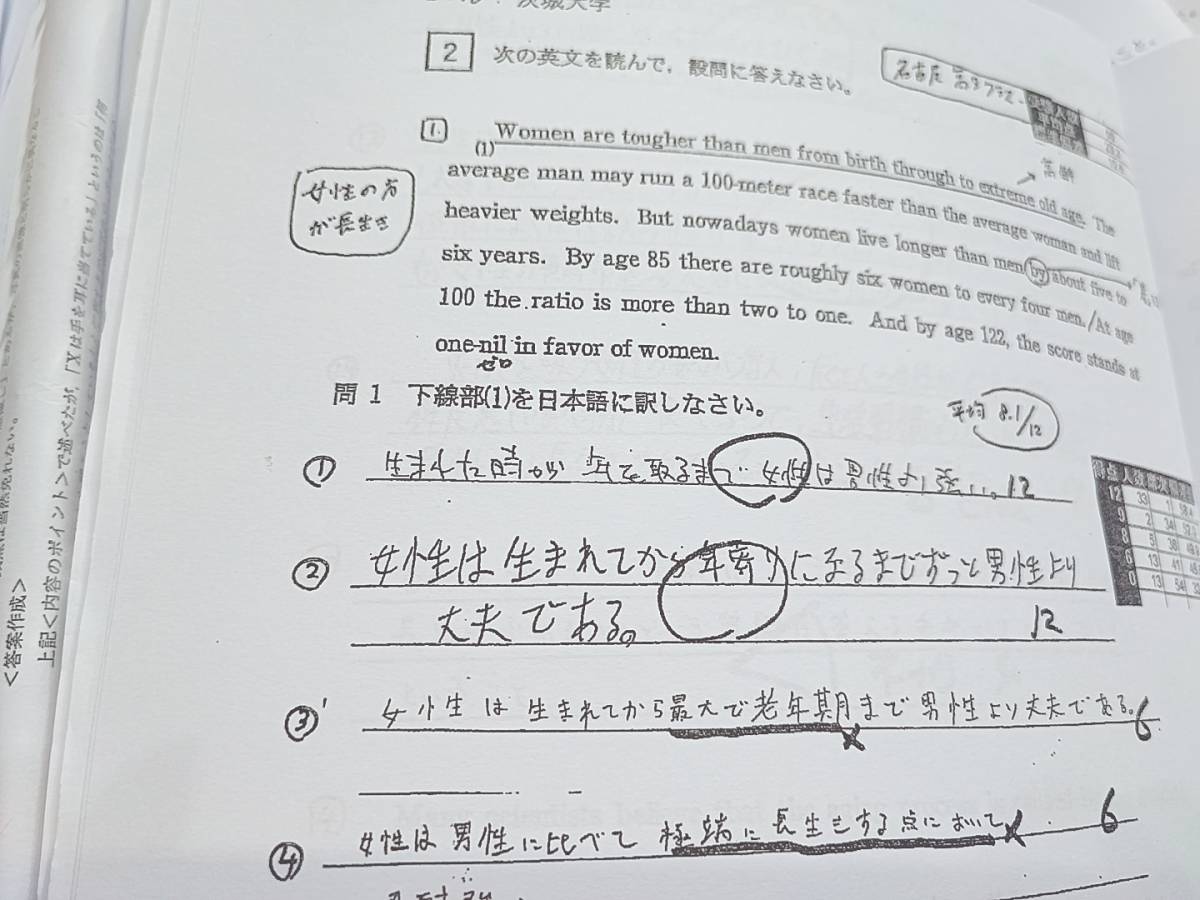 茨城大学
2 次の英文を読んで，設問に答えなさい。
名古屋
1. (1) Women are tougher than men from birth through to extreme old age. The
高齢
average man may run a 100-meter race faster than the average woman and lift
heavier weights. But nowadays women live longer than men by about five to
six years. By age 85 there are roughly six women to every four men. / At age
100 the ratio is more than two to one. And by age 122, the score stands at
one-nil in favor of women.
ゼロ
女性の方
が長生き
問 1 下線部(1)を日本語に訳しなさい。
平均 8.1/12
① 生まれた時から年を取るまで女性は男性より強い。 12
② 女性は生まれてから年寄りになるまでずっと男性より
丈夫である。 12
③ 女性は生まれてから最大で老年期月まで男性より丈夫である。 6
④ 女性は男性に比べて極端に長生きする点において 6
<答案作成>
上記<内容のポイント>で述べたが，「Xは手を耳に当てている」というのは「問